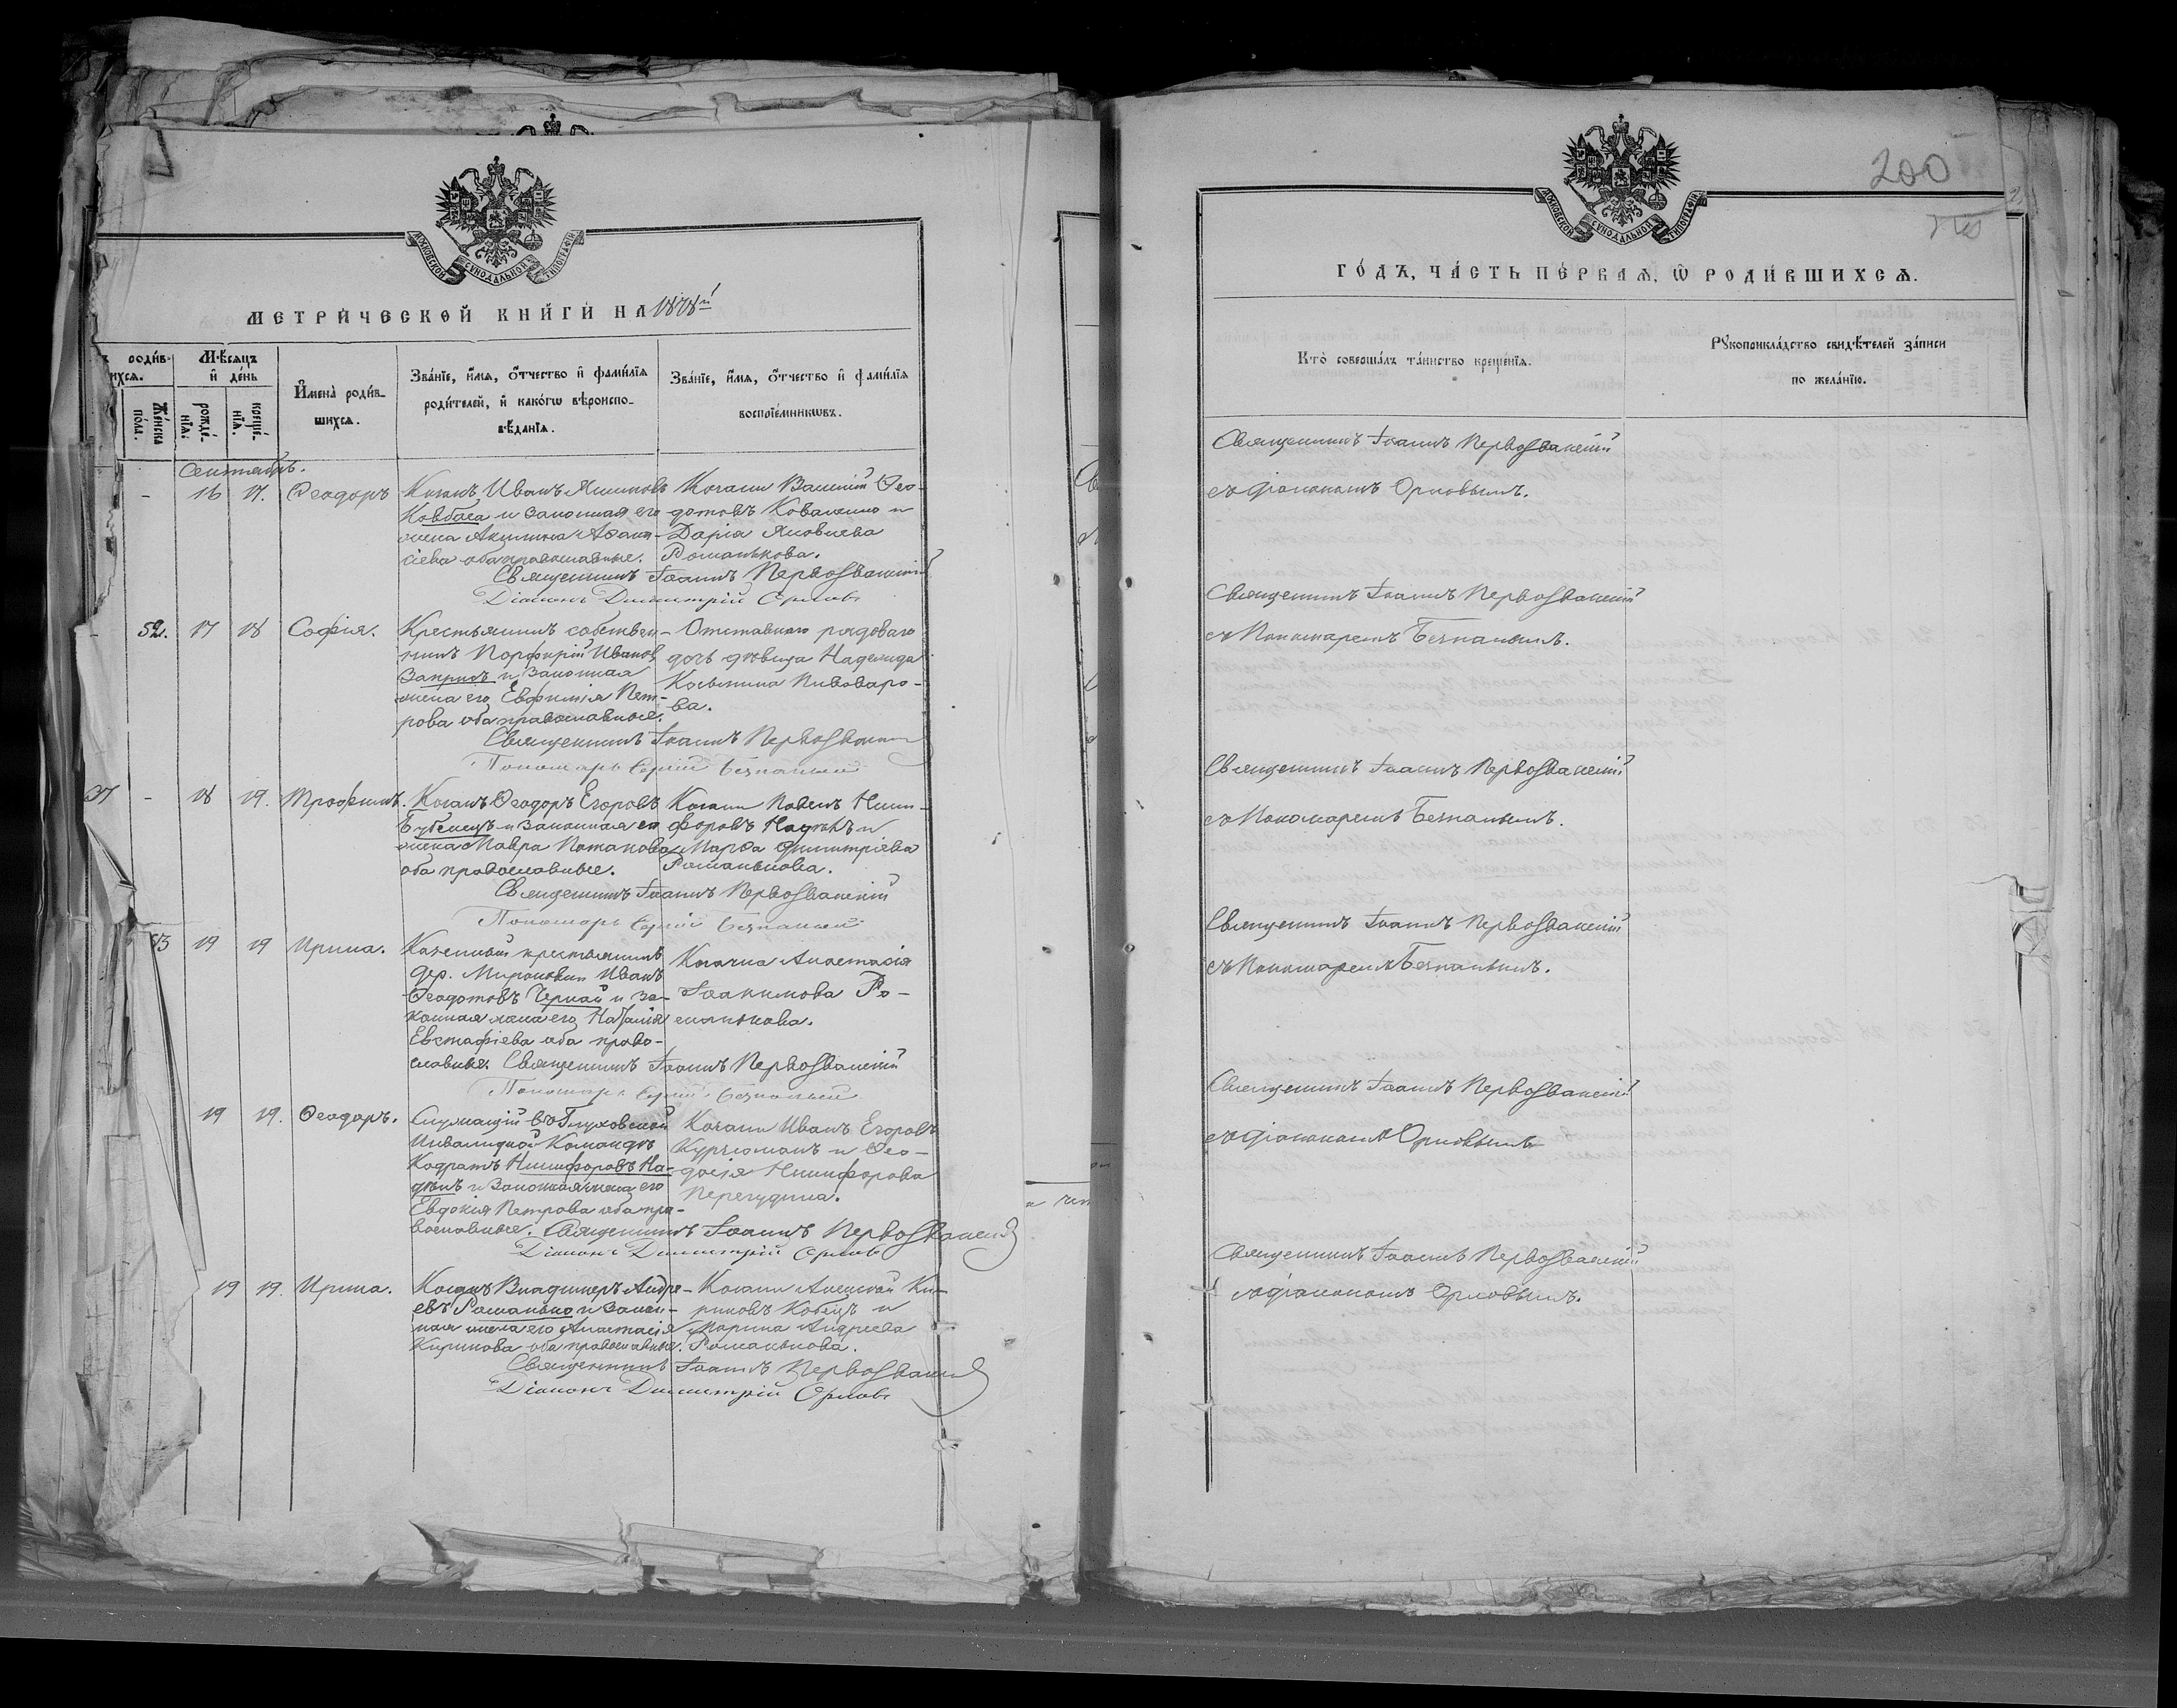 МОСКОВСКОЙ СѴНОДАЛЬНОЙ ТИПОГРАФІИ
МЕТРИ́ЧЕСКОЙ КНИ́ГИ НА 1878й
роди́в-
шихсѧ.
Же́нска по́ла.
Мѣ́сѧцъ и҆ де́нь
рожде́нїѧ.
креще́нїѧ.
И҆мена̀ роди́в-
шихсѧ.
Зва́нїе, и҆́мѧ, ѻ҆́тчество и҆ фами́лїѧ
роди́телей, и҆ како́гѡ вѣроиспо-
вѣ́данїѧ.
Зва́нїе, и҆́мѧ, ѻ҆́тчество и҆ фами́лїѧ
воспрїе́мникѡвъ.
Сентябрь.
- 16 17. Ѳеодоръ
Козакъ Иванъ Акимовъ
Ковбаса и законная его
жена Акилина Аѳана-
сіева оба православные.
Козаки Василій Ѳео-
дотовъ Коваленко и
Дарія Яковлева
Романькова.
Священникъ Іоаннъ Первозванскій
Діаконъ Димитрій Орловъ
52. 17 18 Софія.
Крестьянинъ собствен-
никъ Порфирій Ивановъ
и законная
жена его Евфимія Пет-
рова оба православные.
Отставного рядоваго
дочь дѣвица Надежда
Косьмина Пивоваро-
ва.
Священникъ Іоаннъ Первозванскій
Пономарь Сергій Безпалый
37 - 18 19. Трофимъ.
Козакъ Ѳеодоръ Егоровъ
Бубенецъ и законная его
жена Мавра Потапова
оба православные.
Козаки Павелъ Ники-
форовъ и
Марѳа Димитріева
Романькова.
Священникъ Іоаннъ Первозванскій
Пономарь Сергій Безпалый
53 19 19 Ирина.
Казенный крестьянинъ
дер. Иванъ
Ѳеодотовъ Черный и за-
конная жена его Наталія
Евстафіева оба право-
славные.
Козачка Анастасія
Іоакимова Ро-
манькова.
Священникъ Іоаннъ Первозванскій
Пономарь Сергій Безпалый
19 19. Ѳеодоръ.
Служащій въ Глуховской
Инвалидной Командѣ
Кодратъ Никифоровъ На-
и законная жена его
Евдокія Петрова оба пра-
вославные.
Козаки Иванъ Егоровъ
и Ѳео-
досія Никифорова
Перегудина.
Священникъ Іоаннъ Первозванскій
Діаконъ Димитрій Орловъ
19 19. Ирина.
Козакъ Владимеръ Андре-
евъ Романько и закон-
ная жена его Анастасія
Кирикова оба православные.
Козаки Алексѣй Ки-
риковъ Кобецъ и
Марина Андреева
Романькова.
Священникъ Іоаннъ Первозванскій
Діаконъ Димитрій Орловъ
200
МОСКОВСКОЙ СѴНОДАЛЬНОЙ ТИПОГРАФІИ
ГО́ДЪ, ЧА́СТЬ ПЕ́РВАѦ, Ѡ҆ РОДИ́ВШИХСѦ.
Кто̀ соверша́лъ та́инство креще́нїѧ.
Рꙋкоприкла́дство свидѣ́телей за́писи
по жела́нїю.
Священникъ Іоаннъ Первозванскій
съ діакономъ Орловымъ.
Священникъ Іоаннъ Первозванскій
съ Пономаремъ Безпалымъ.
Священникъ Іоаннъ Первозванскій
съ Пономаремъ Безпалымъ.
Священникъ Іоаннъ Первозванскій
съ Пономаремъ Безпалымъ.
Священникъ Іоаннъ Первозванскій
съ діакономъ Орловымъ
Священникъ Іоаннъ Первозванскій
съ діакономъ Орловымъ.